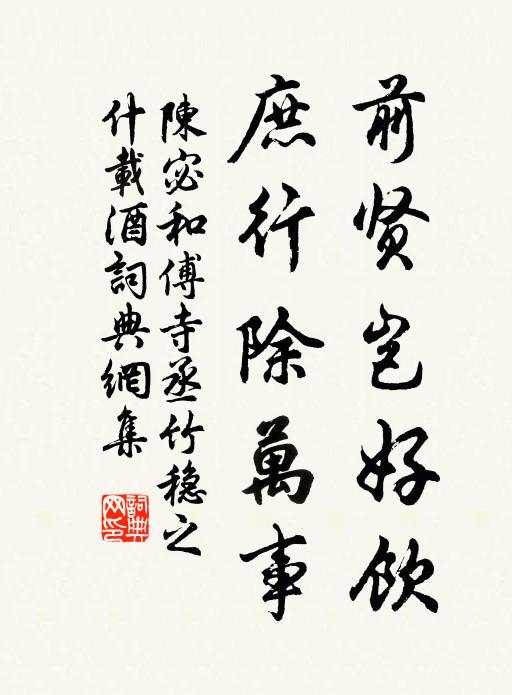 前贤岂好饮
庶行除萬事
陳宓和傅寺丞竹穏之
什載酒詞典網集
詞典网印